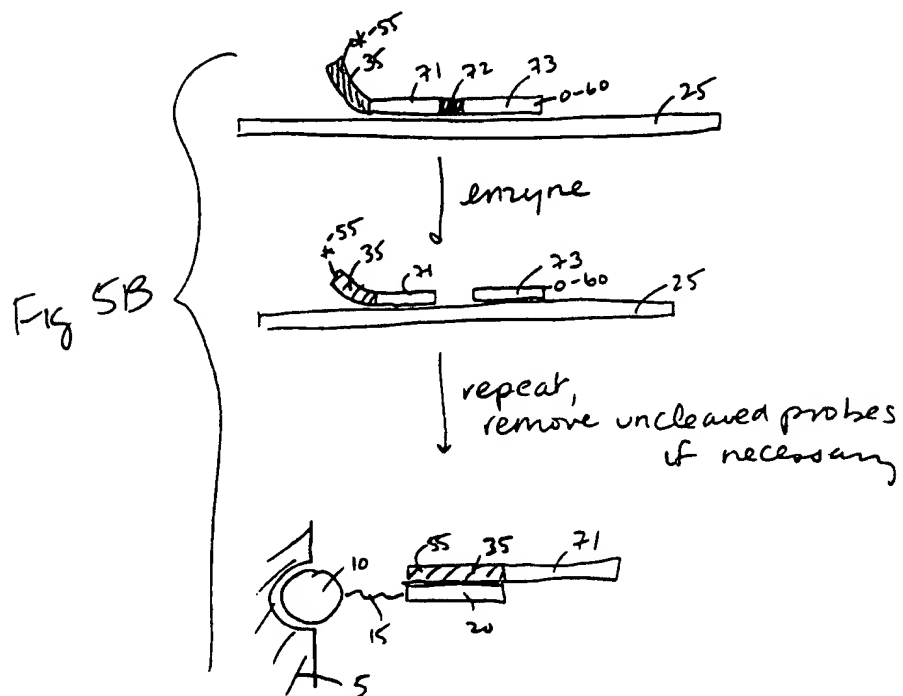 *-55
35
71 72 73
0-60
25
enzyne
*-55
35
71
73
0-60
25
Fig 5B
repeat,
remove uncleaved probes
if necessary
10
55 35 71
15
20
5